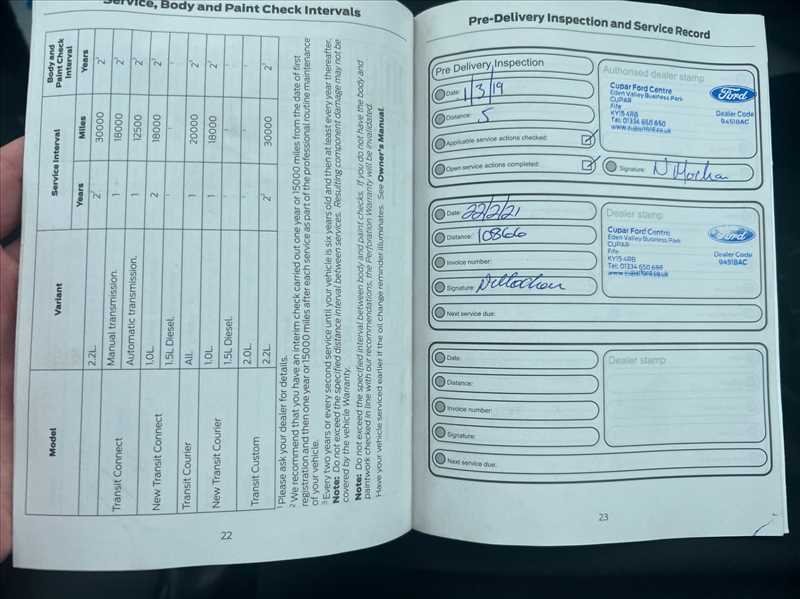 Service, Body and Paint Check Intervals
Model Variant Service Interval Body and Paint Check Interval
Years Miles Years
2.2L. 2² 30000 2³
Transit Connect Manual transmission. 1 18000 2³
Automatic transmission. 1 12500 2³
New Transit Connect 1.0L. 2 18000 2³
1.5L Diesel. - - -
Transit Courier All. 1 20000 2³
New Transit Courier 1.0L. 1 18000 2³
1.5L Diesel. - - -
Transit Custom 2.0L. - - -
2.2L. 2² 30000 2³
¹ Please ask your dealer for details.
² We recommend that you have an interim check carried out one year or 15000 miles from the date of first
registration and then one year or 15000 miles after each service as part of the professional routine maintenance
of your vehicle.
³ Every two years or every second service until your vehicle is six years old and then at least every year thereafter.
Note: Do not exceed the specified distance interval between services. Resulting component damage may not be
covered by the vehicle Warranty.
Note: Do not exceed the specified interval between body and paint checks. If you do not have the body and
paintwork checked in line with our recommendations, the Perforation Warranty will be invalidated.
Have your vehicle serviced earlier if the oil change reminder illuminates. See Owner's Manual.
22
Pre-Delivery Inspection and Service Record
Pre Delivery Inspection
Date: 1/3/19
Distance: 5
Applicable service actions checked:
Open service actions completed:
Authorised dealer stamp
Cupar Ford Centre
Eden Valley Business Park
CUPAR
Fife
KY15 4RB
Tel: 01334 650 650
www.cuparford.co.uk
Ford
Dealer Code
94518AC
Signature:
Date: 22/2/21
Distance: 10866
Invoice number:
Signature:
Next service due:
Dealer stamp
Cupar Ford Centre
Eden Valley Business Park
CUPAR
Fife
KY15 4RB
Tel: 01334 650 650
www.cuparford.co.uk
Ford
Dealer Code
94518AC
Date:
Distance:
Invoice number:
Signature:
Next service due:
Dealer stamp
23